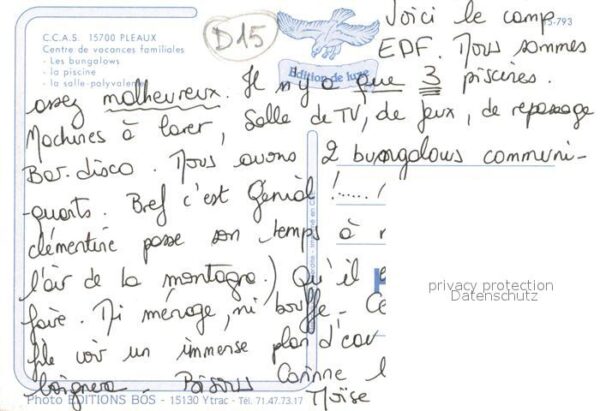 C.C.A.S. 15700 PLEAUX
Centre de vacances familiales
- Les bungalows
- la piscine
- la salle polyvalente
D15
Edition de luxe
5-793
Voici le camp
EDF. Nous sommes
assez malheureux. Il n'y a que 3 piscines.
Machines à laver, Salle de TV, de jeux, de repassage
Bar-disco. Nous avons 2 bungalows communi-
-quants. Bref c'est Génial !...... !
clémentine passe son temps à
l'air de la montagne.) Qu'il
faire. Ni ménage, ni bouffe. Ce
file voir un immense plan d'eau
baignera. Bisous Corinne
Moïse
privacy protection
Datenschutz
Photo EDITIONS BOS - 15130 Ytrac - Tél. 71.47.73.17